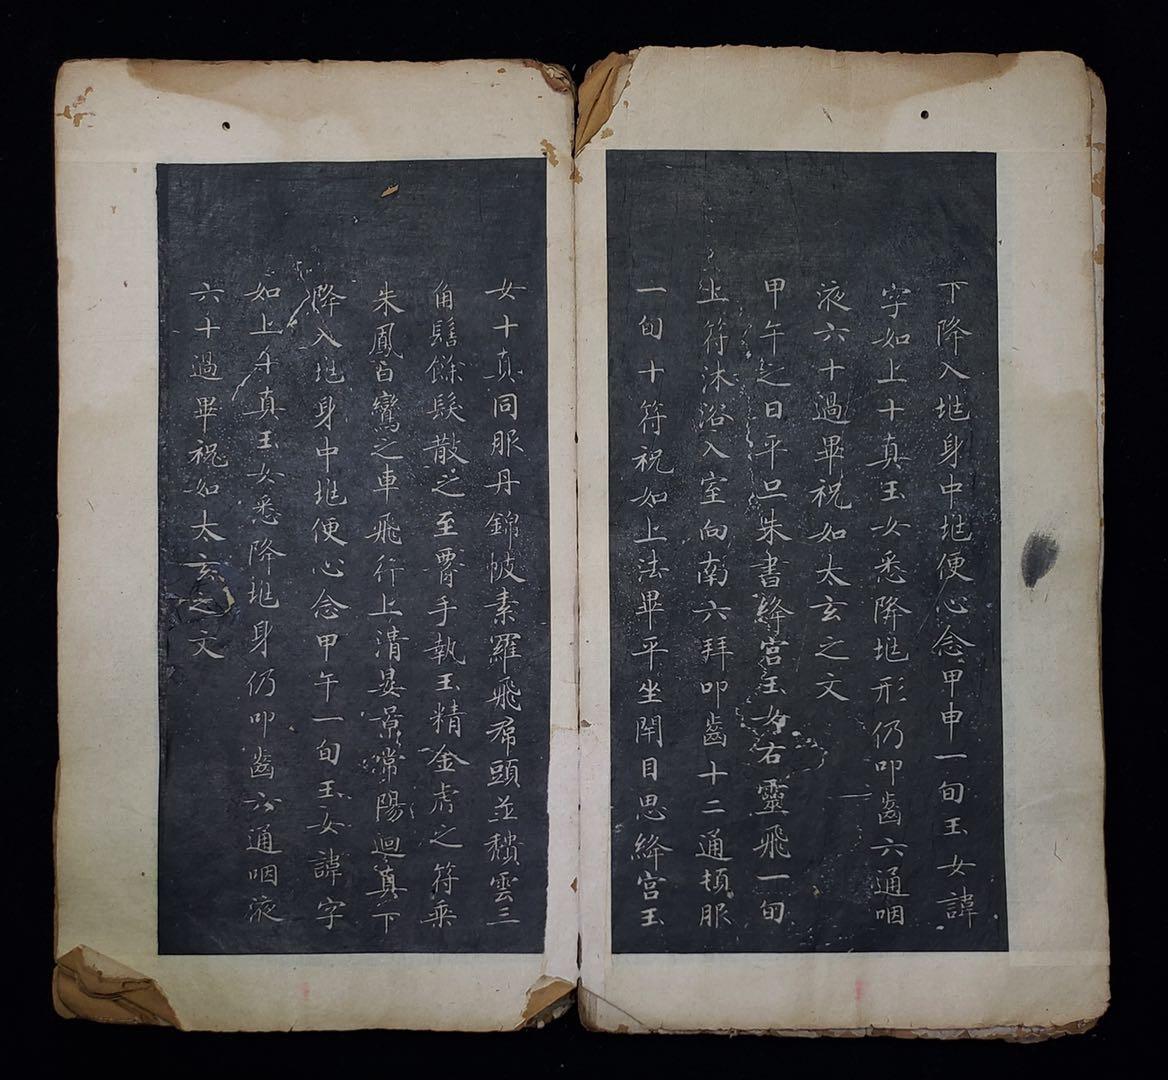 下降入地身中地便心念甲申一旬玉女諱
字如上十真玉女悉降地形仍叩齒六通咽
液六十過畢祝如太玄之文
甲午之日平旦朱書絳宮玉女右靈飛一旬
上符沐浴入室向南六拜叩齒十二通頓服
一旬十符祝如上法畢平坐閇目思絳宮玉
女十真同服丹錦帔素羅飛帬頭並頹雲三
角髻餘髮散之至腰手執玉精金虎之符乘
朱鳳白鸞之車飛行上清晏景常陽迴真下
降入地身中地便心念甲午一旬玉女諱字
如上十真玉女悉降地身仍叩齒六通咽液
六十過畢祝如太玄之文